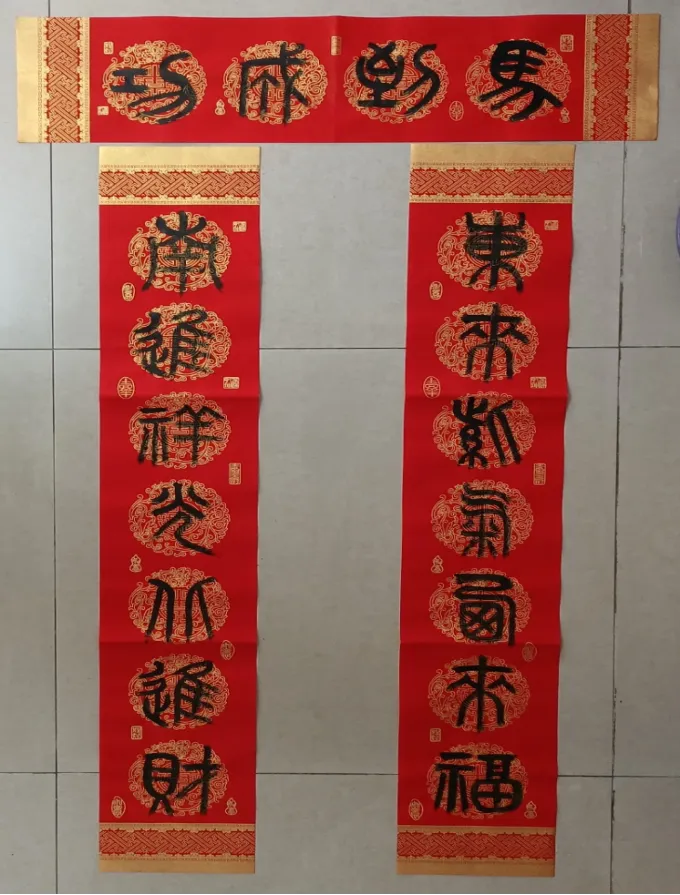 馬到成功
東來紫氣西來福
南進祥光北進財